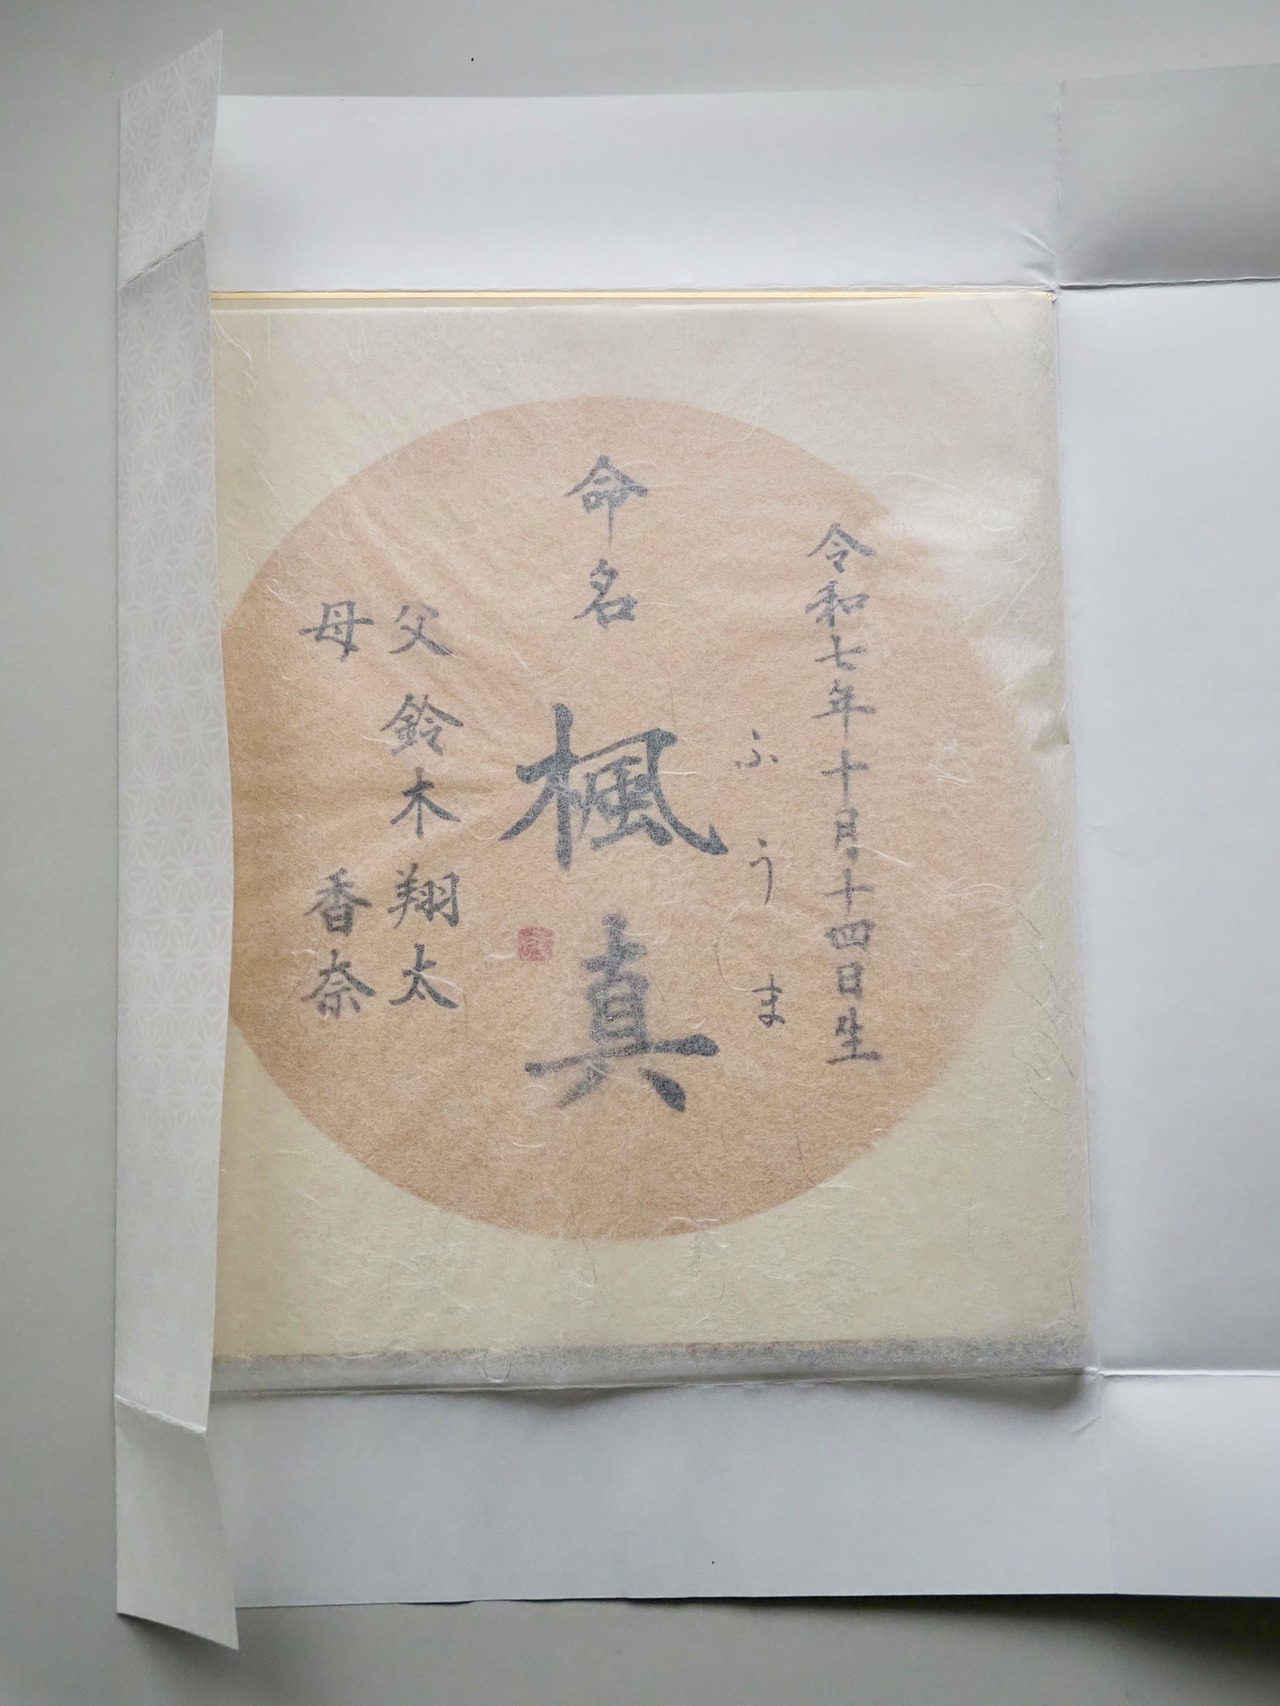 令和七年十月十四日生
ふうま
命名
楓真
父 鈴木翔太
母 香奈